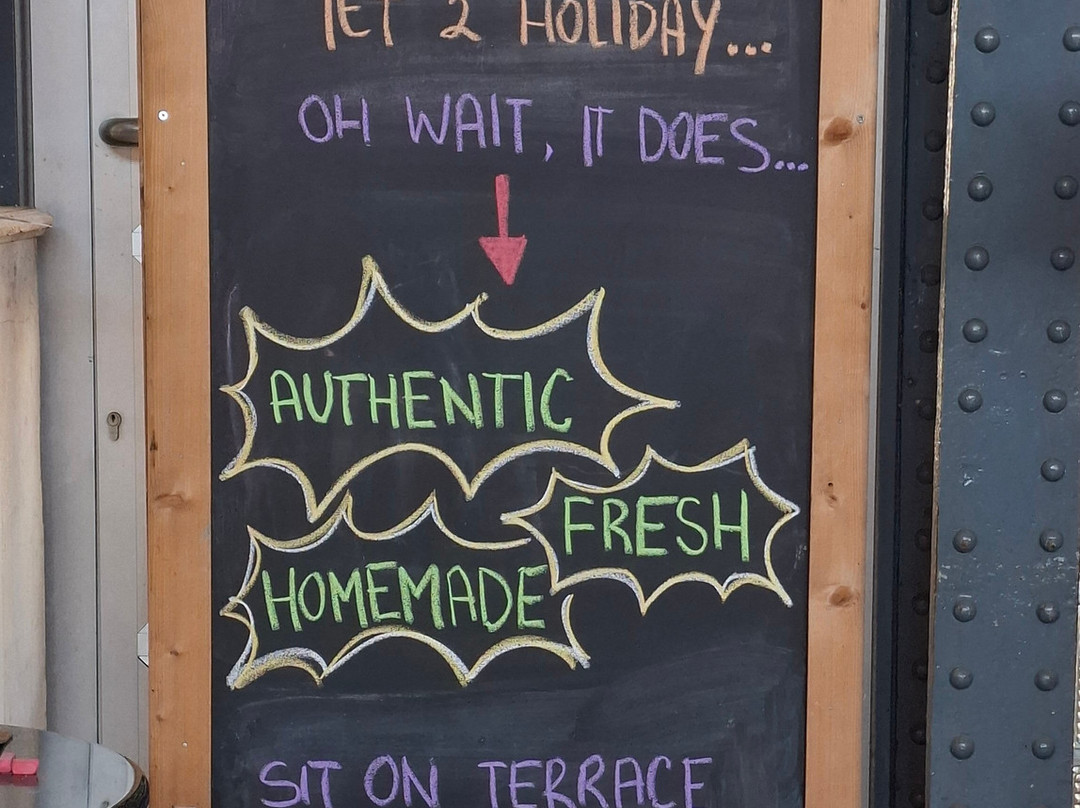 JET 2 HOLIDAY...
OH WAIT, IT DOES...
AUTHENTIC
FRESH
HOMEMADE
SIT ON TERRACE